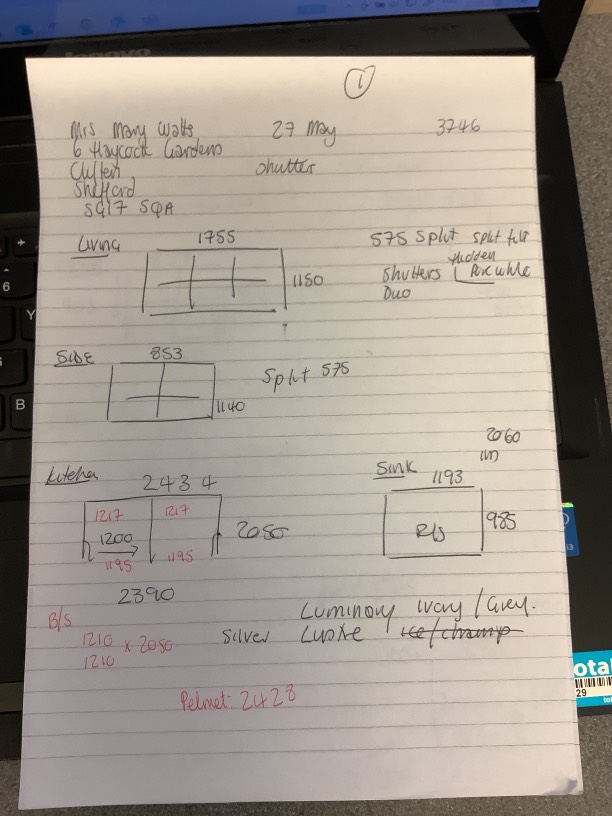 1
Mrs Mary Watts 27 May 3746
6 Haycock Gardens
Clifton shutter
Shefford
SG17 5QA
Living 1755 575 Split split tilt
Hidden
1150 Shutters
Duo
SIDE 853
Split 575
1140
2060
Kitchen 2434 Sink 1193
1217 1217
1200 2050 R/S 985
1195 1195
2390
B/S
Luminory Ivory / Grey.
1210 x 2050 Silver Lustre Ice/champ
1210
Pelmet: 2428
lenovo
6
Y
B
otal
29